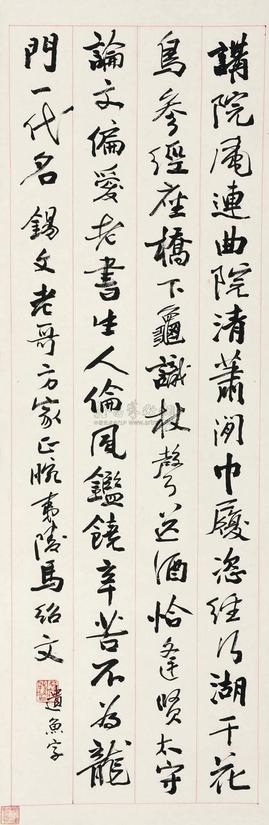 講院風連曲院清蕭閒巾履恣經行湖干花
鳥參經座橋下龜識杖聲送酒恰逢賢太守
論文偏愛老書生人倫風鑑饒辛苦不為龍
門一代名 錫文老哥方家正腕 夷陵馬紹文
遺魚字